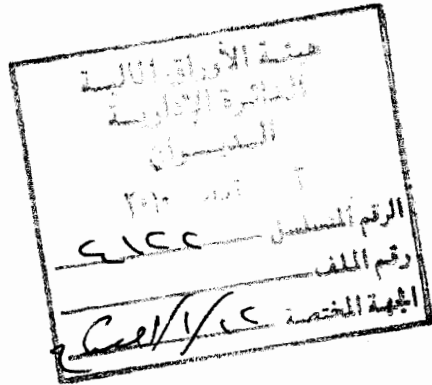 هيئة الأوراق المالية
الدائرة الإدارية
الديوان
٢٠١٠
الرقم المتسلسل ٤١٢٢
رقم الملف
الجهة المختصة